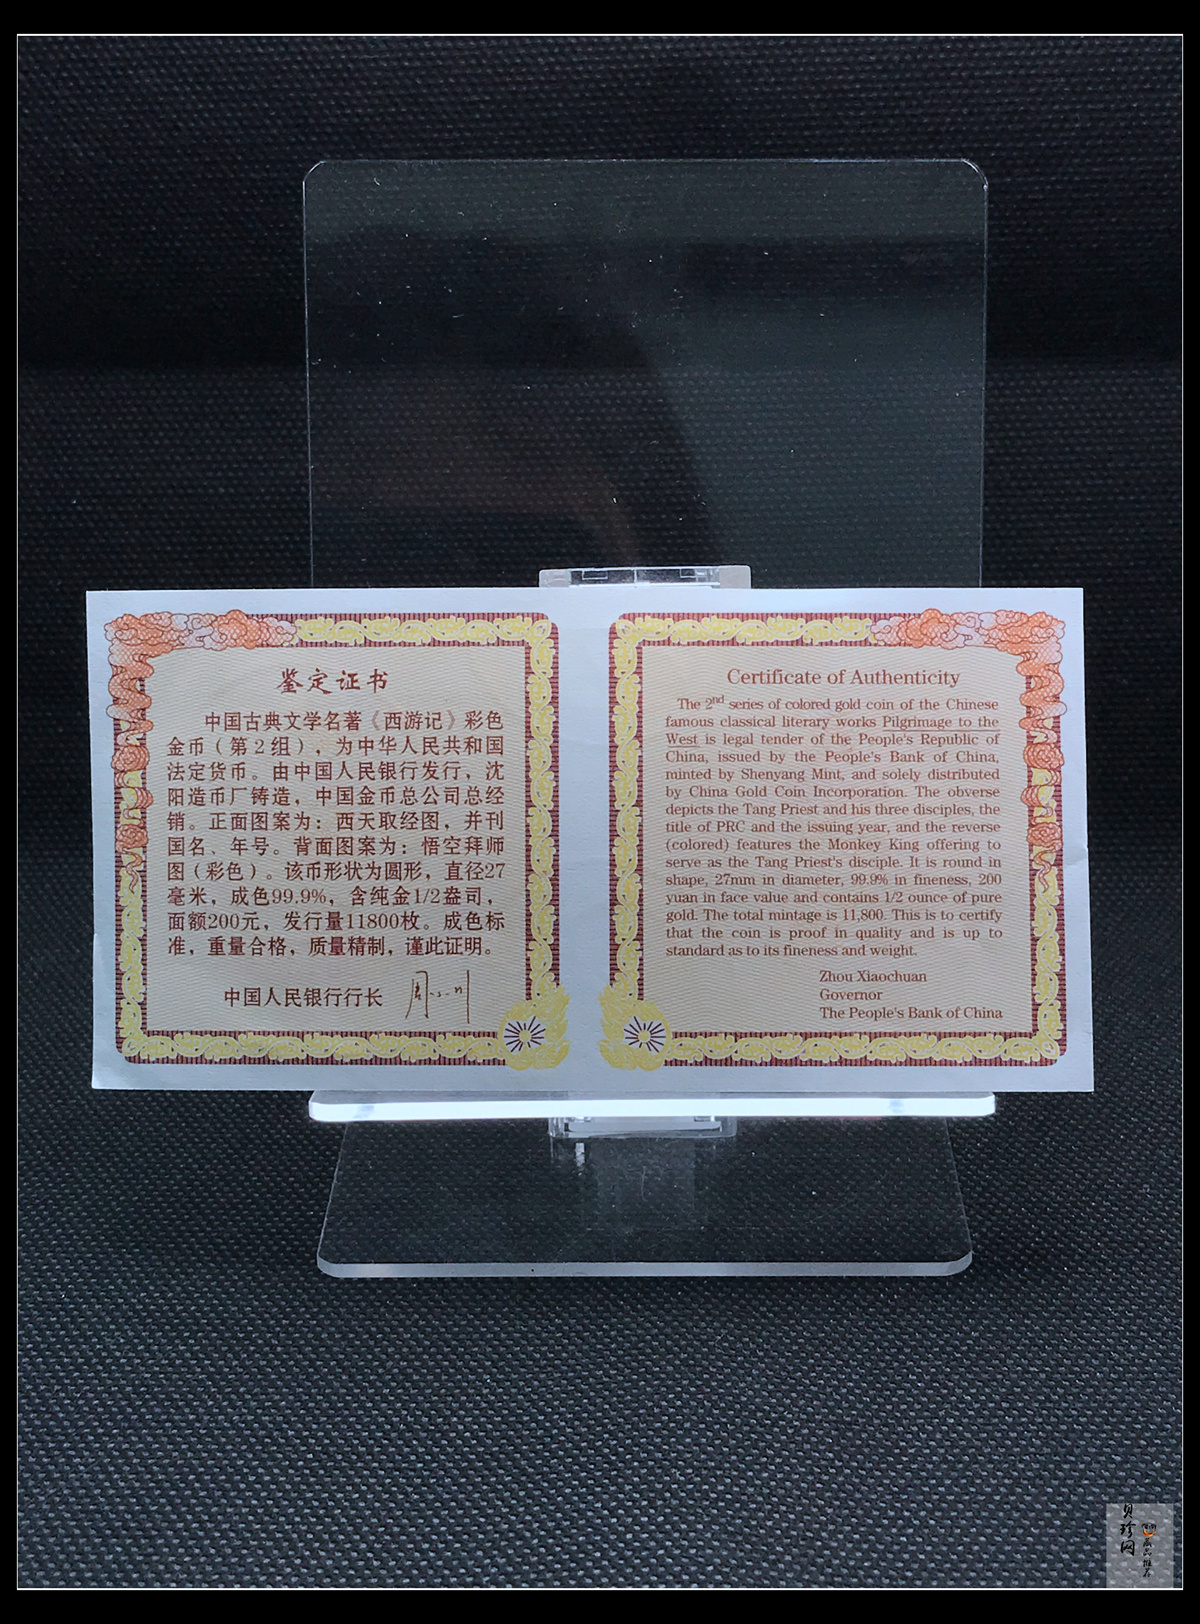 鉴定证书
中国古典文学名著《西游记》彩色
金币（第2组），为中华人民共和国
法定货币。由中国人民银行发行，沈
阳造币厂铸造，中国金币总公司总经
销。正面图案为：西天取经图，并刊
国名、年号。背面图案为：悟空拜师
图（彩色）。该币形状为圆形，直径27
毫米，成色99.9%，含纯金1/2盎司，
面额200元，发行量11800枚。成色标
准，重量合格，质量精制，谨此证明。
中国人民银行行长
Certificate of Authenticity
The 2nd series of colored gold coin of the Chinese
famous classical literary works Pilgrimage to the
West is legal tender of the People's Republic of
China, issued by the People's Bank of China,
minted by Shenyang Mint, and solely distributed
by China Gold Coin Incorporation. The obverse
depicts the Tang Priest and his three disciples, the
title of PRC and the issuing year, and the reverse
(colored) features the Monkey King offering to
serve as the Tang Priest's disciple. It is round in
shape, 27mm in diameter, 99.9% in fineness, 200
yuan in face value and contains 1/2 ounce of pure
gold. The total mintage is 11,800. This is to certify
that the coin is proof in quality and is up to
standard as to its fineness and weight.
Zhou Xiaochuan
Governor
The People's Bank of China
贝珍网